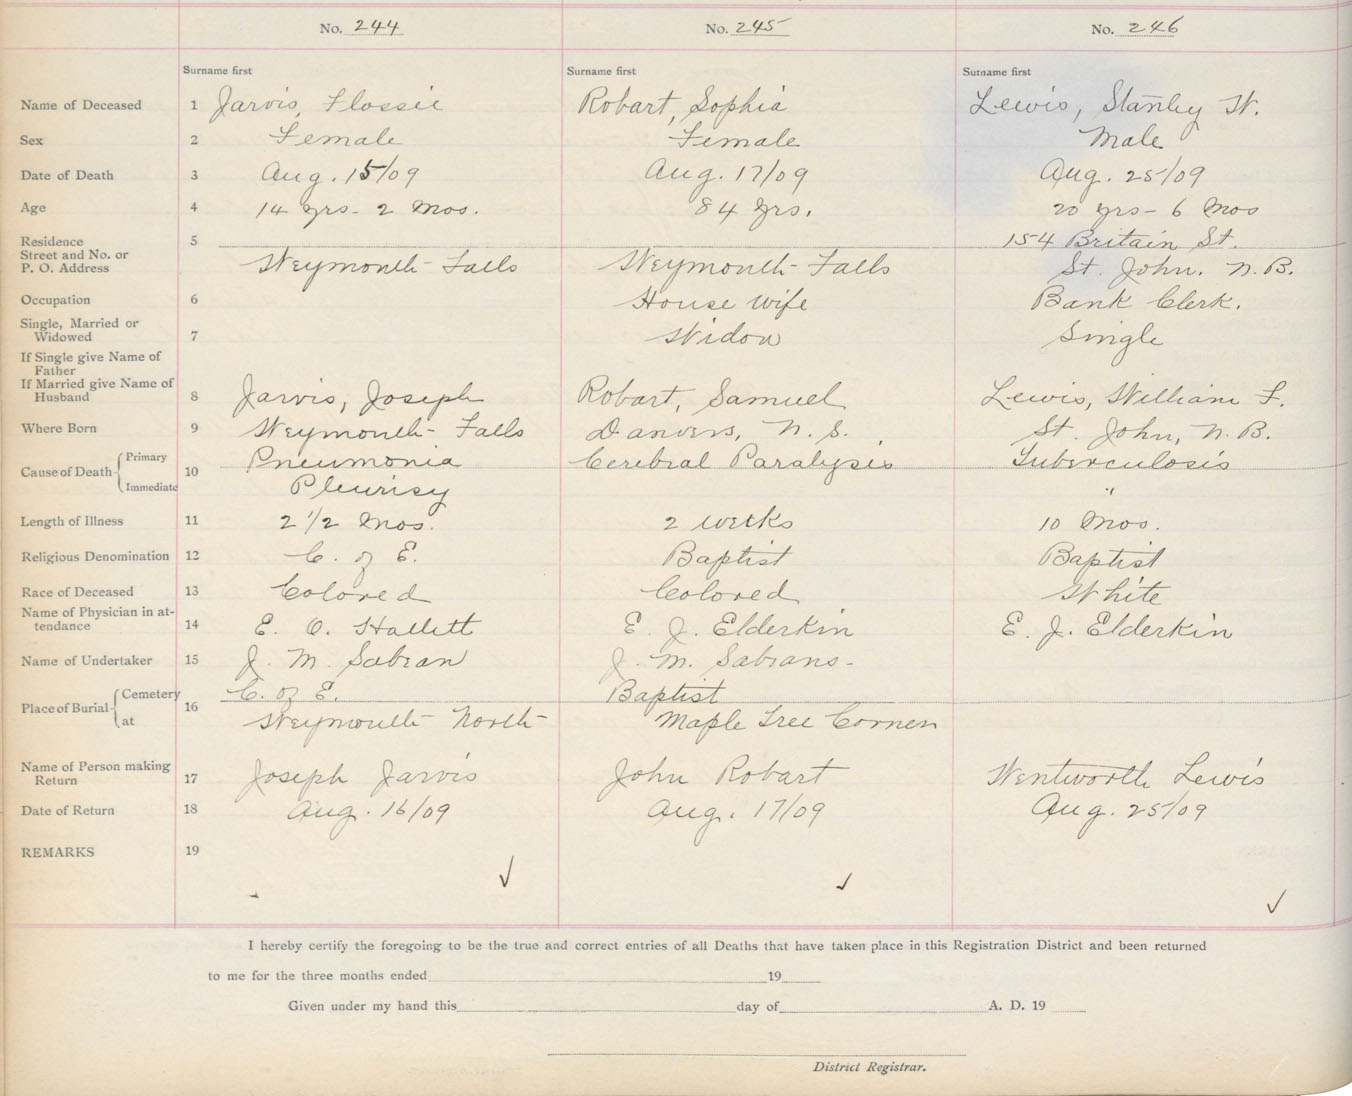 No. 244 No. 245 No. 246
Surname first Surname first Surname first
Name of Deceased 1 Jarvis, Flossie Robart, Sophia Lewis, Stanley W.
Sex 2 Female Female Male
Date of Death 3 Aug. 15/09 Aug. 17/09 Aug. 25/09
Age 4 14 yrs - 2 Mos. 84 yrs. 20 yrs - 6 Mos
Residence 5 154 Britain St.
Street and No. or
P. O. Address Weymouth Falls Weymouth Falls St. John. N. B.
Occupation 6 House wife Bank Clerk.
Single, Married or
Widowed 7 Widow Single
If Single give Name of
Father
If Married give Name of
Husband 8 Jarvis, Joseph Robart, Samuel Lewis, William F.
Where Born 9 Weymouth - Falls Danvers, N. S. St. John, N. B.
Cause of Death Primary 10 Pneumonia Cerebral Paralysis Tuberculosis
Immediate Pleurisy "
Length of Illness 11 2 1/2 Mos. 2 weeks 10 Mos.
Religious Denomination 12 C. of E. Baptist Baptist
Race of Deceased 13 Colored Colored White
Name of Physician in at-
tendance 14 E. O. Hallett E. J. Elderkin E. J. Elderkin
Name of Undertaker 15 J. M. Sabean J. M. Sabeans -
Place of Burial Cemetery 16 C. of E. Baptist
at Weymouth North Maple Tree Corner
Name of Person making
Return 17 Joseph Jarvis John Robart Wentworth Lewis
Date of Return 18 Aug. 16/09 Aug. 17/09 Aug. 25/09
REMARKS 19
✓ ✓ ✓
I hereby certify the foregoing to be the true and correct entries of all Deaths that have taken place in this Registration District and been returned
to me for the three months ended 19
Given under my hand this day of A. D. 19
District Registrar.